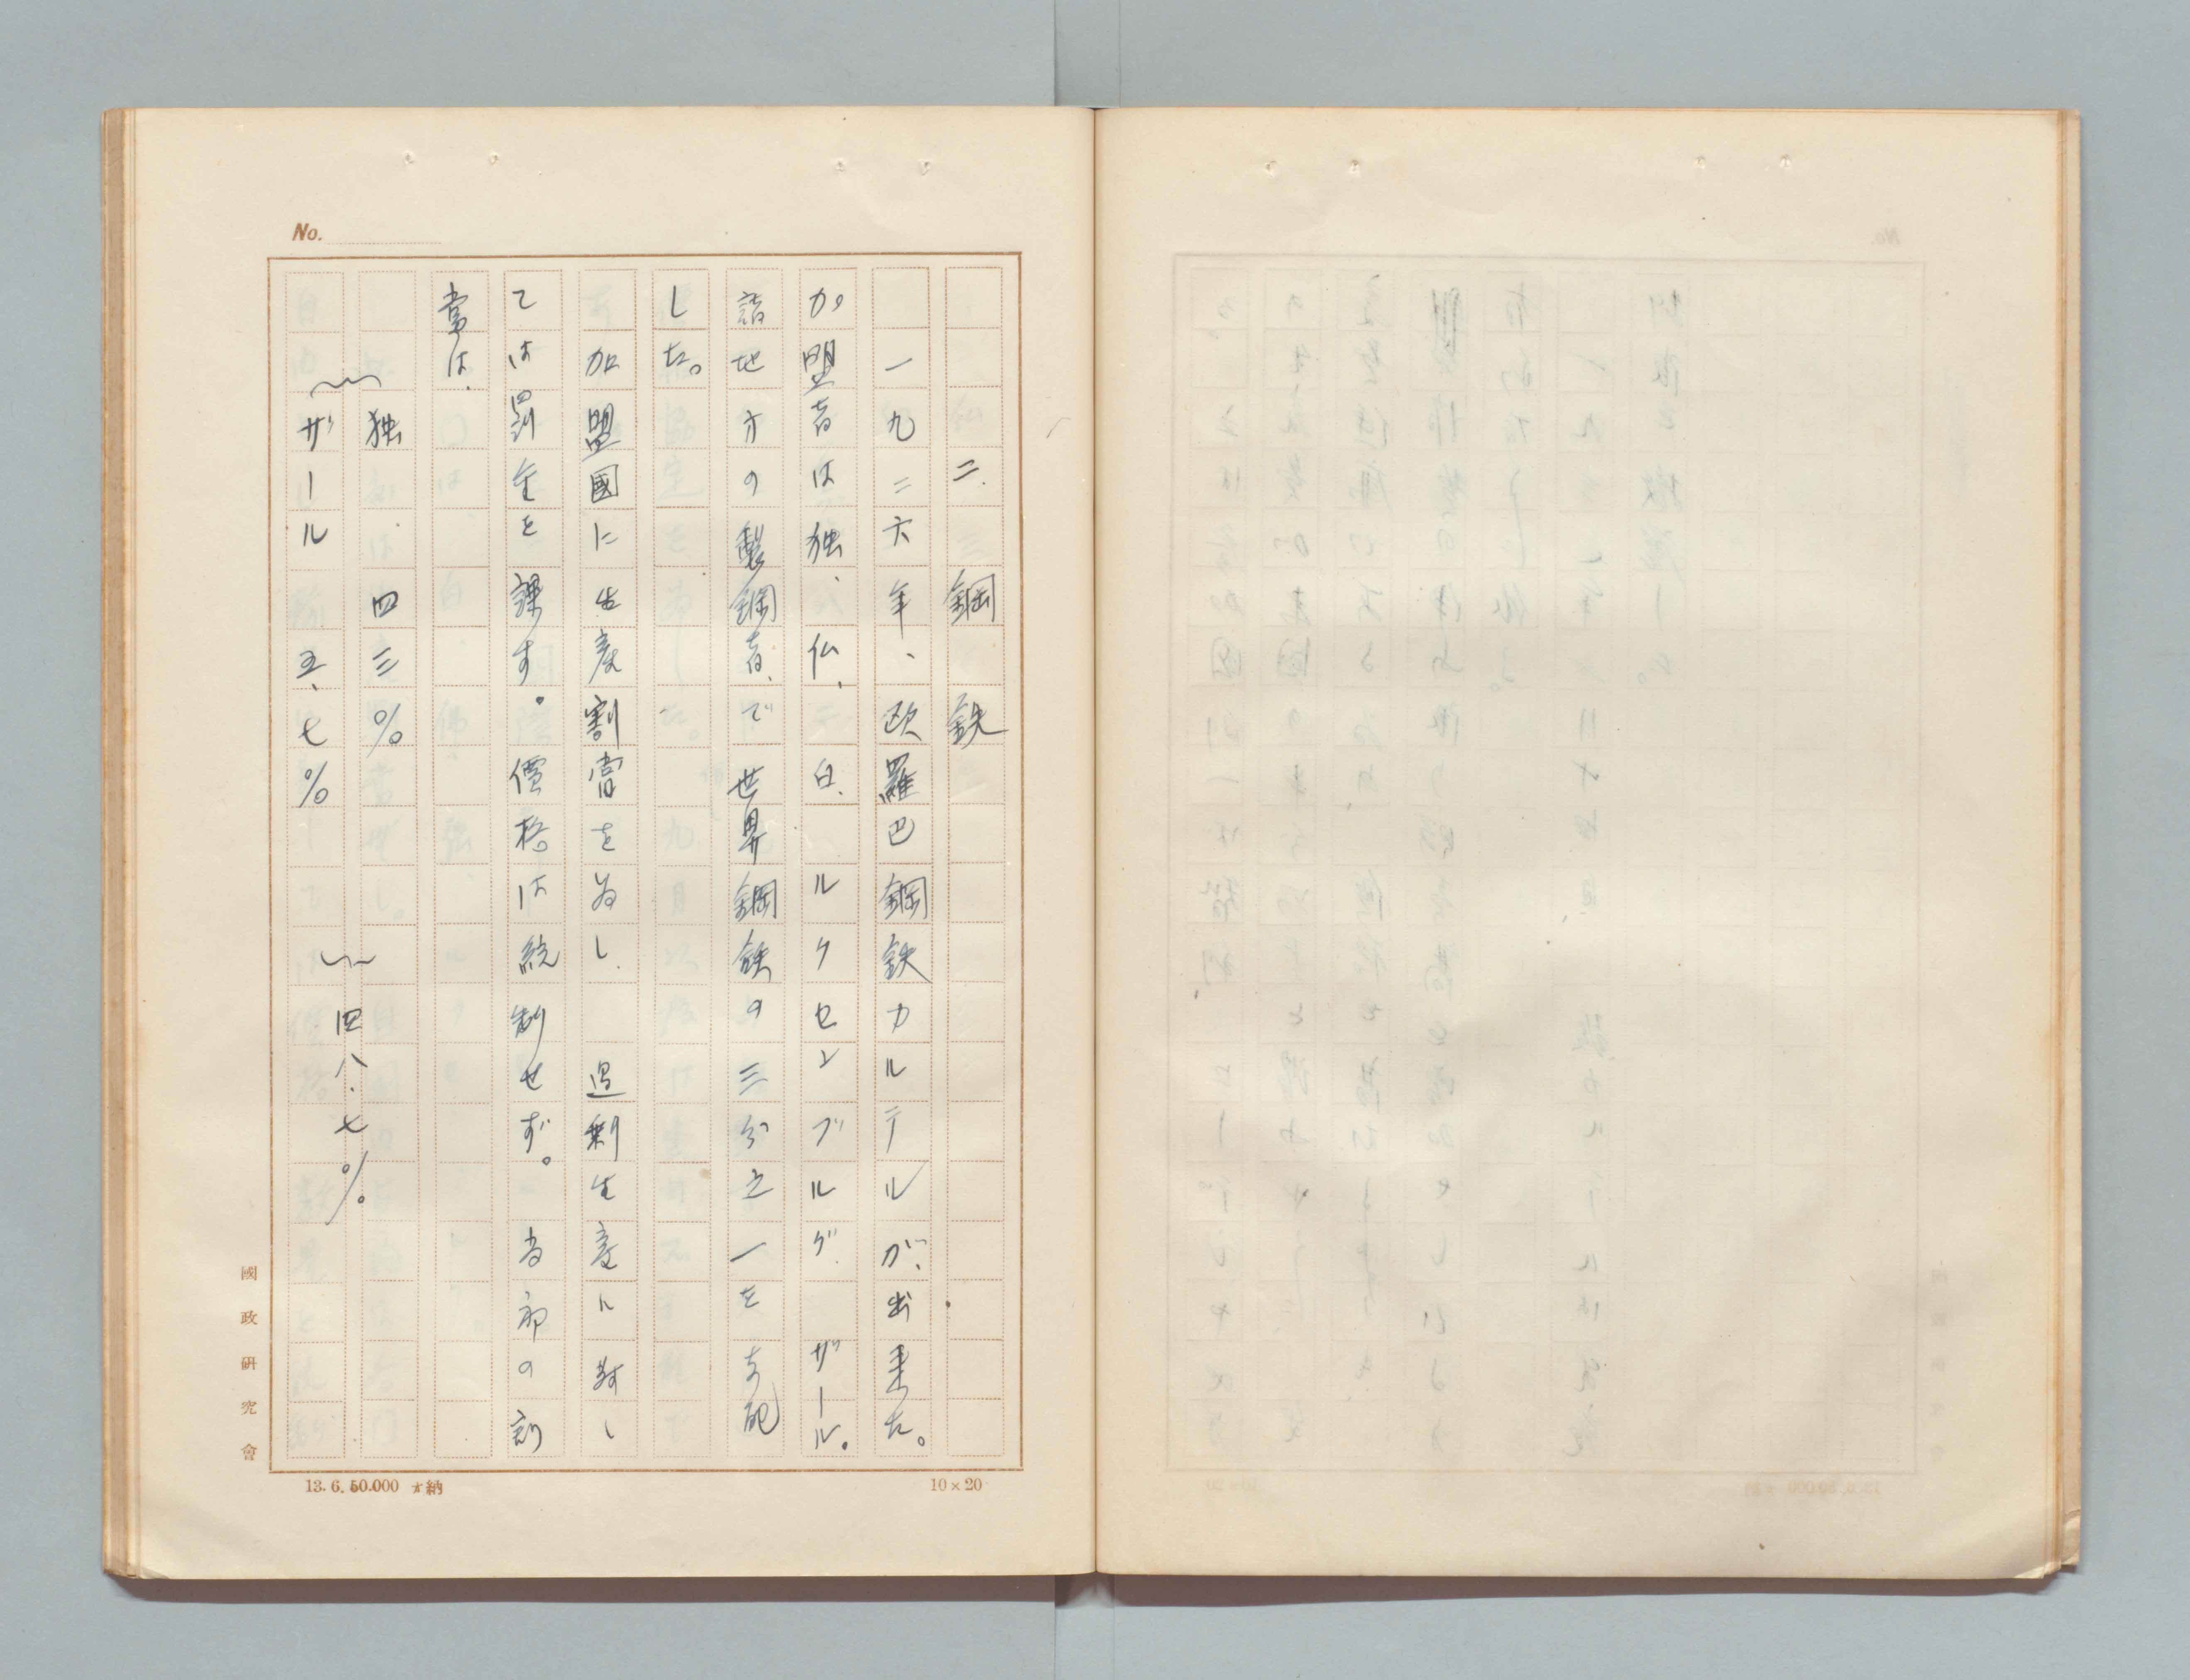 No.
二.鋼鉄
一九二六年、欧羅巴鋼鉄カルテルが、出来た。
加盟者は独、仏、白、ルクセンブルグ、ザール。
諸地方の製鋼者、で世界鋼鉄の三分之一を支配
した。
加盟國に生産割當を為し、過剰生産に対し
ては罰金を課す。價格は統制せず。当初の割
當は、
独、四三%
ザール 五、七%
四八・七%
國政研究會
13.6.50.000 納
10×20